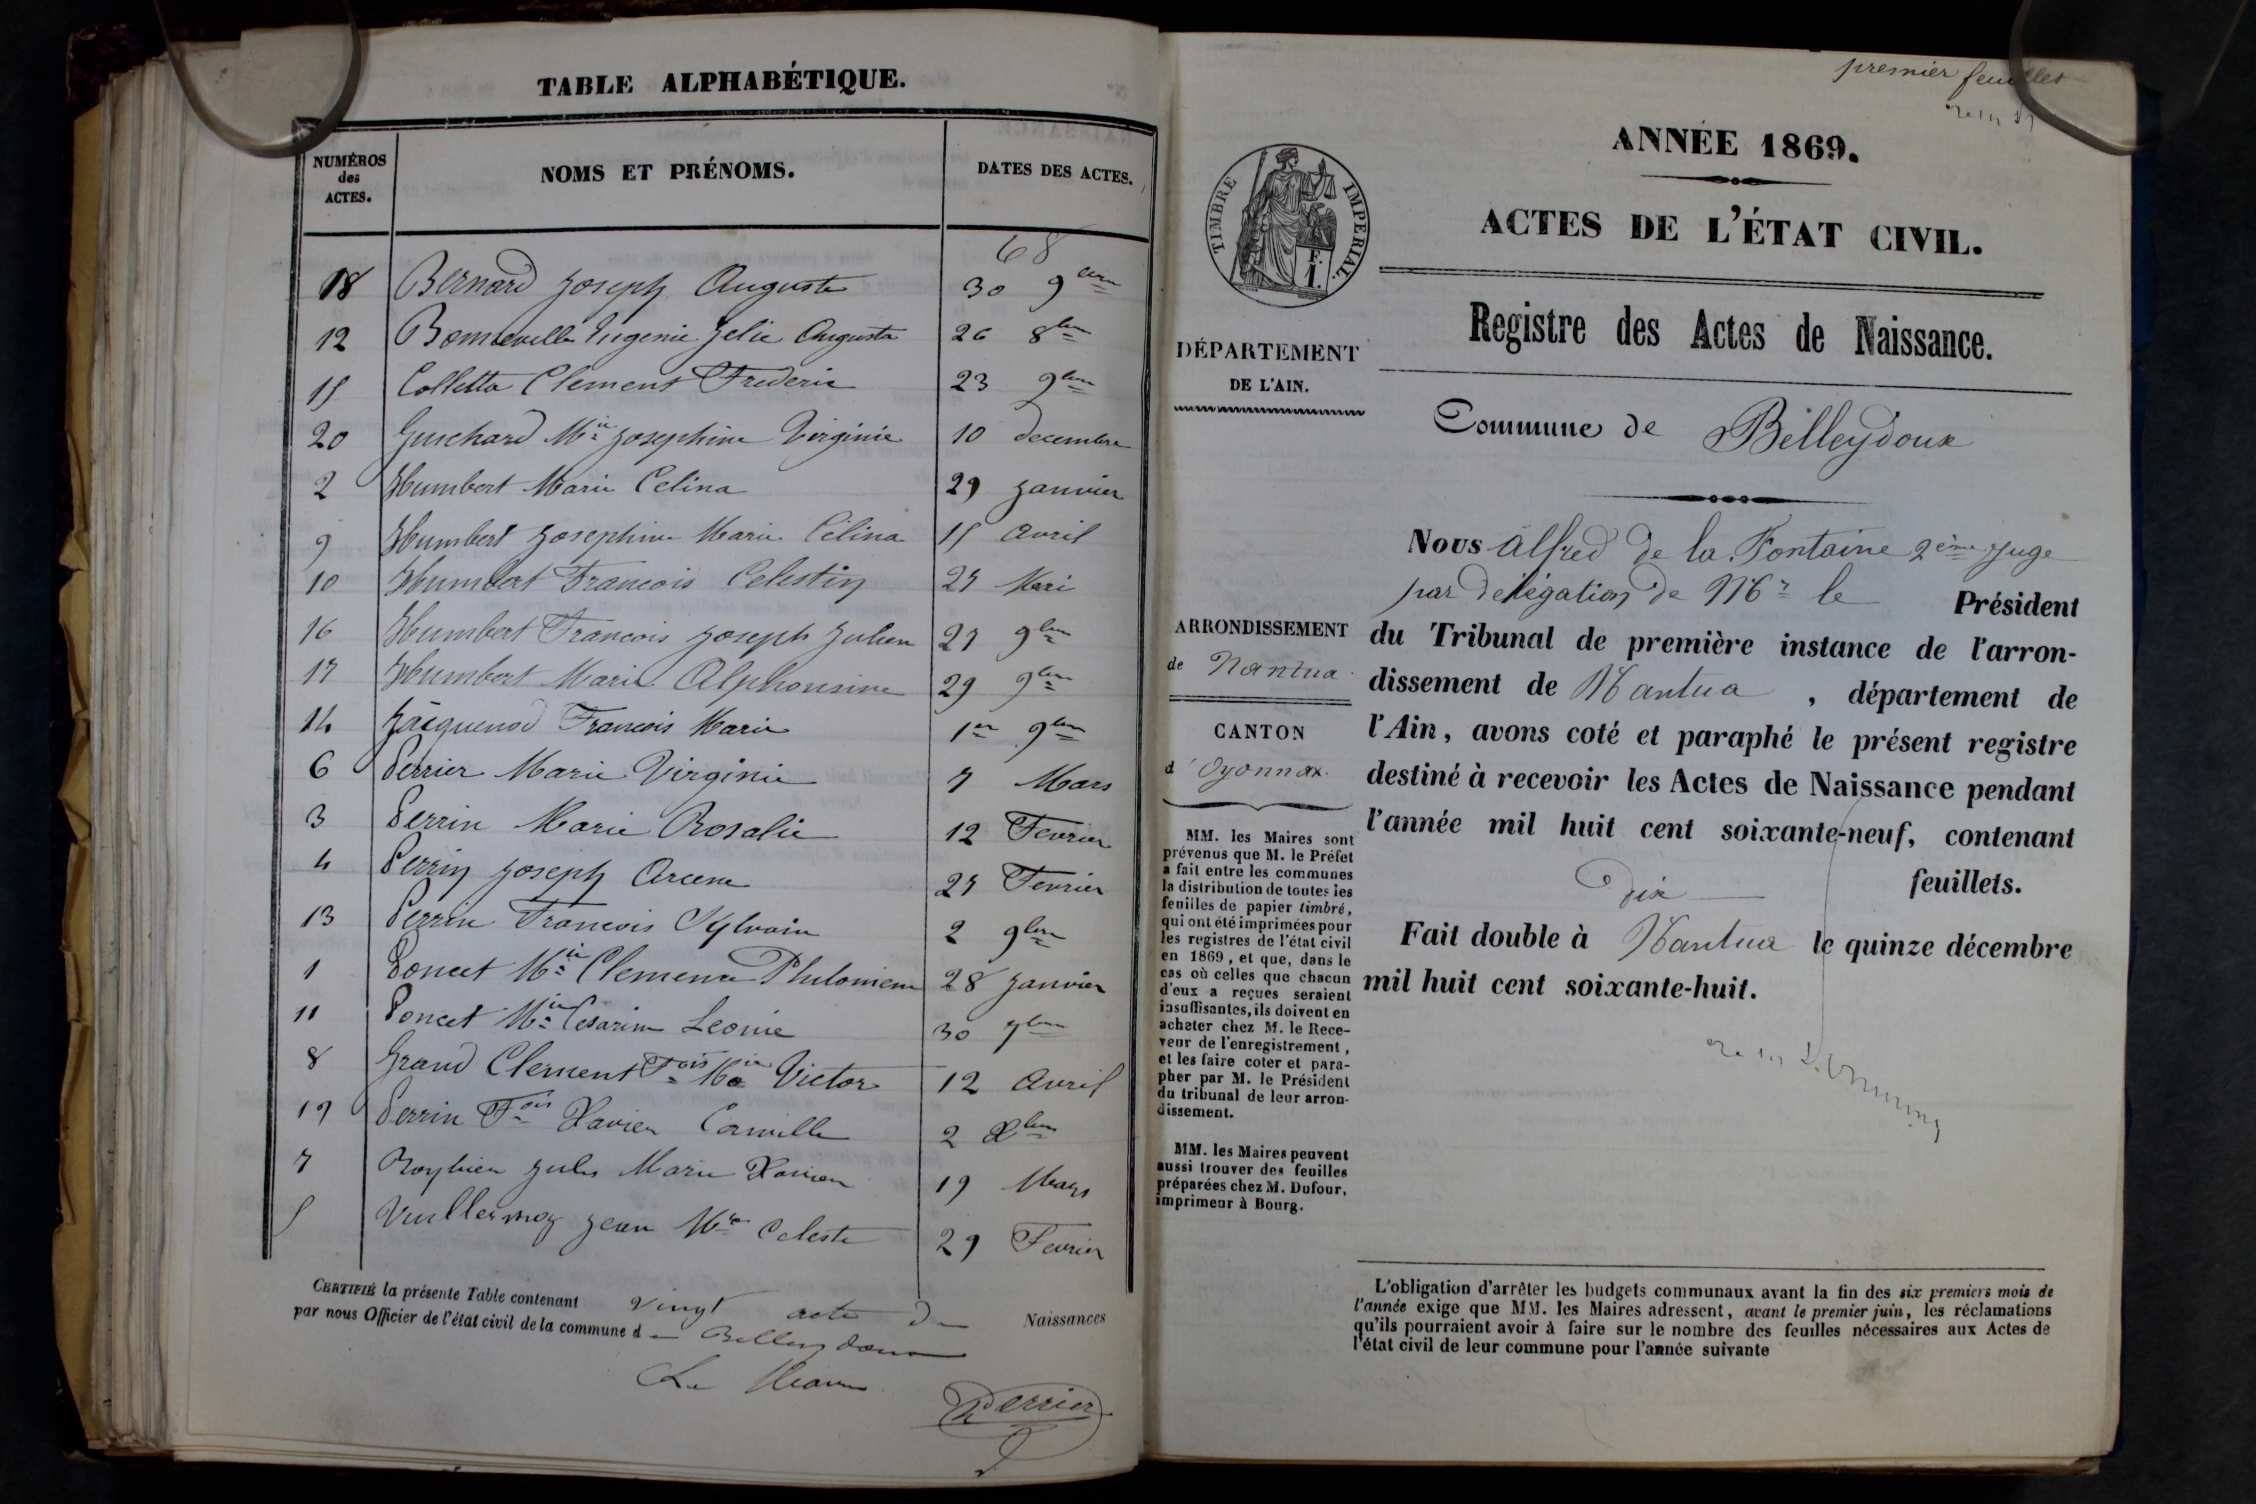 TABLE ALPHABÉTIQUE.
NUMÉROS des ACTES.
NOMS ET PRÉNOMS.
DATES DES ACTES.
68
18 Bernard Joseph Auguste 30 9bre
12 Bonneville Eugenie Zelie Augusta 26 8bre
15 Colletta Clement Frederic 23 9bre
20 Guichard Mie Josephine Virginie 10 decembre
2 Humbert Marie Celina 29 Janvier
9 Humbert Josephine Marie Célina 15 Avril
10 Humbert Francois Celestin 27 Mai
16 Humbert Francois Joseph Julien 27 9bre
17 Humbert Marie Alphonsine 29 9bre
14 Jacquenod Francois Marie 1er 9bre
6 Perrier Marie Virginie 7 Mars
3 Perrin Marie Rosalie 12 Fevrier
4 Perrin Joseph Arcene 27 Fevrier
13 Perrin Francois Sylvain 2 9bre
1 Poncet Mie Clemence Philomene 28 Janvier
11 Poncet Mie Cesarine Leonie 30 7bre
8 Grand Clement Fois Mie Victor 12 Avril
19 Perrin Fois Xavier Camille 2 Xbre
7 Roybier Jules Marie Xavier 19 Mars
5 Vuillermoz Jean Mie Celeste 29 Fevrier
CERTIFIÉ la présente Table contenant vingt acte de Naissances
par nous Officier de l'état civil de la commune d Belleydoux
Le Maire
Perrier
premier feuillet
ANNÉE 1869.
TIMBRE IMPERIAL.
F.
1.
ACTES DE L'ÉTAT CIVIL.
Registre des Actes de Naissance.
DÉPARTEMENT
DE L'AIN.
Commune de Belleydoux
Nous Alfred De la Fontaine 2ème Juge
par délégation de Mr le Président
du Tribunal de première instance de l'arron-
dissement de Nantua, département de
l'Ain, avons coté et paraphé le présent registre
destiné à recevoir les Actes de Naissance pendant
l'année mil huit cent soixante-neuf, contenant
Dix feuillets.
Fait double à Nantua le quinze décembre
mil huit cent soixante-huit.
ARRONDISSEMENT
de Nantua
CANTON
d'Oyonnax.
MM. les Maires sont
prévenus que M. le Préfet
a fait entre les communes
la distribution de toutes les
feuilles de papier timbré,
qui ont été imprimées pour
les registres de l'état civil
en 1869, et que, dans le
cas où celles que chacun
d'eux a reçues seraient
insuffisantes, ils doivent en
acheter chez M. le Rece-
veur de l'enregistrement,
et les faire coter et para-
pher par M. le Président
du tribunal de leur arron-
dissement.
MM. les Maires peuvent
aussi trouver des feuilles
préparées chez M. Dufour,
imprimeur à Bourg.
L'obligation d'arrêter les budgets communaux avant la fin des six premiers mois de
l'année exige que MM. les Maires adressent, avant le premier juin, les réclamations
qu'ils pourraient avoir à faire sur le nombre des feuilles nécessaires aux Actes de
l'état civil de leur commune pour l'année suivante